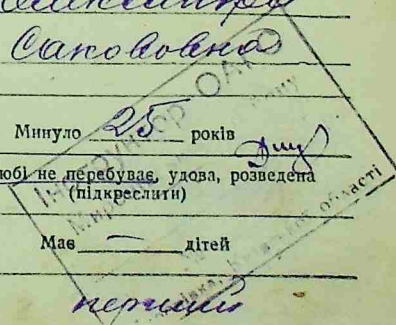 Сакововна
Минуло 25 років
юбі не перебуває, удова, розведена
(підкреслити)
Має — дітей
перший
Інструктор ОАГС
області